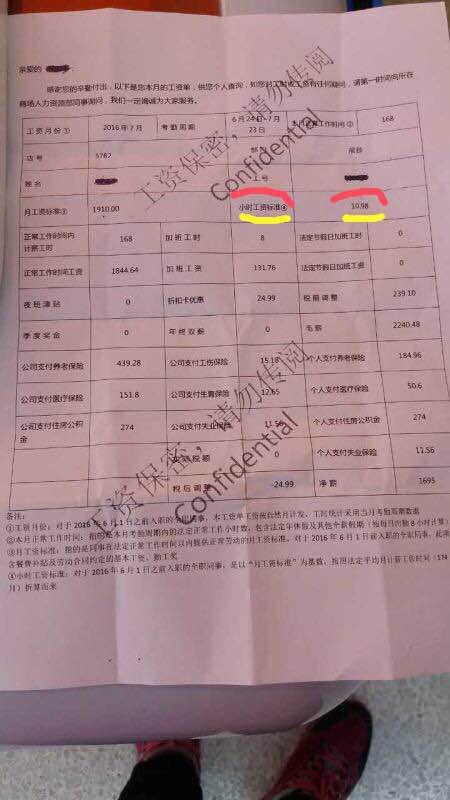 亲爱的
感谢您的辛勤付出，以下是您本月的工资单，供您个人查询，如您对工时或工资有任何疑问，请第一时间向所在
商场人力资源部同事询问，我们一定竭诚为大家服务。
工资月份① 2016年7月 考勤周期 6月24日-7月23日 本月正常工作时间② 168
店号 5782 部门 前台
姓名 工号
月工资标准③ 1910.00 小时工资标准④ 10.98
正常工作时间内计薪工时 168 加班工时 8 法定节假日加班工时 0
正常工作时间工资 1844.64 加班工资 131.76 法定节假日加班工资 0
夜班津贴 0 折扣卡优惠 24.99 税前调整 239.10
季度奖金 0 年终双薪 0 毛薪 2240.48
公司支付养老保险 439.28 公司支付工伤保险 15.18 个人支付养老保险 184.96
公司支付医疗保险 151.8 公司支付生育保险 12.65 个人支付医疗保险 50.6
公司支付住房公积金 274 公司支付失业保险 11.56 个人支付住房公积金 274
税额 0 个人支付失业保险 11.56
税后调整 -24.99 净薪 1695
备注：
①工资月份：对于2016年6月1日之前入职的全职同事，本工资单工资按自然月计发，工时统计采用当月考勤周期数据
②本月正常工作时间：指的是本月考勤周期内的法定正常工作小时数，包含法定年休假及其他全薪假期（按每日出勤8小时计算）
③月工资标准：指的是同事在法定正常工作时间以内提供正常劳动的月工资标准。对于2016年6月1日前入职的全职同事，此项
含餐费补贴及劳动合同约定的基本工资、勤工奖
④小时工资标准：对于2016年6月1日之前入职的全职同事，是以“月工资标准”为基数，按照法定平均月计薪工作时间（174
月）折算而来
工资保密，请勿传阅
Confidential
工资保密，请勿传阅
Confidential